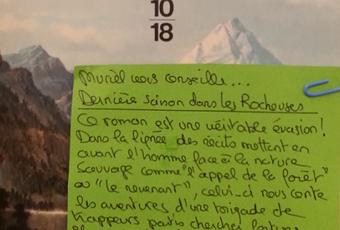 10
18
Muriel vous conseille...
Dernière saison dans les Rocheuses
Ce roman est une véritable évasion!
Dans la lignée des récits mettant en
avant l'homme face à la nature
Sauvage comme "l'appel de la forêt"
ou "le revenant", celui-ci nous conte
les aventures d'une brigade de
trappeurs partis chercher fortune